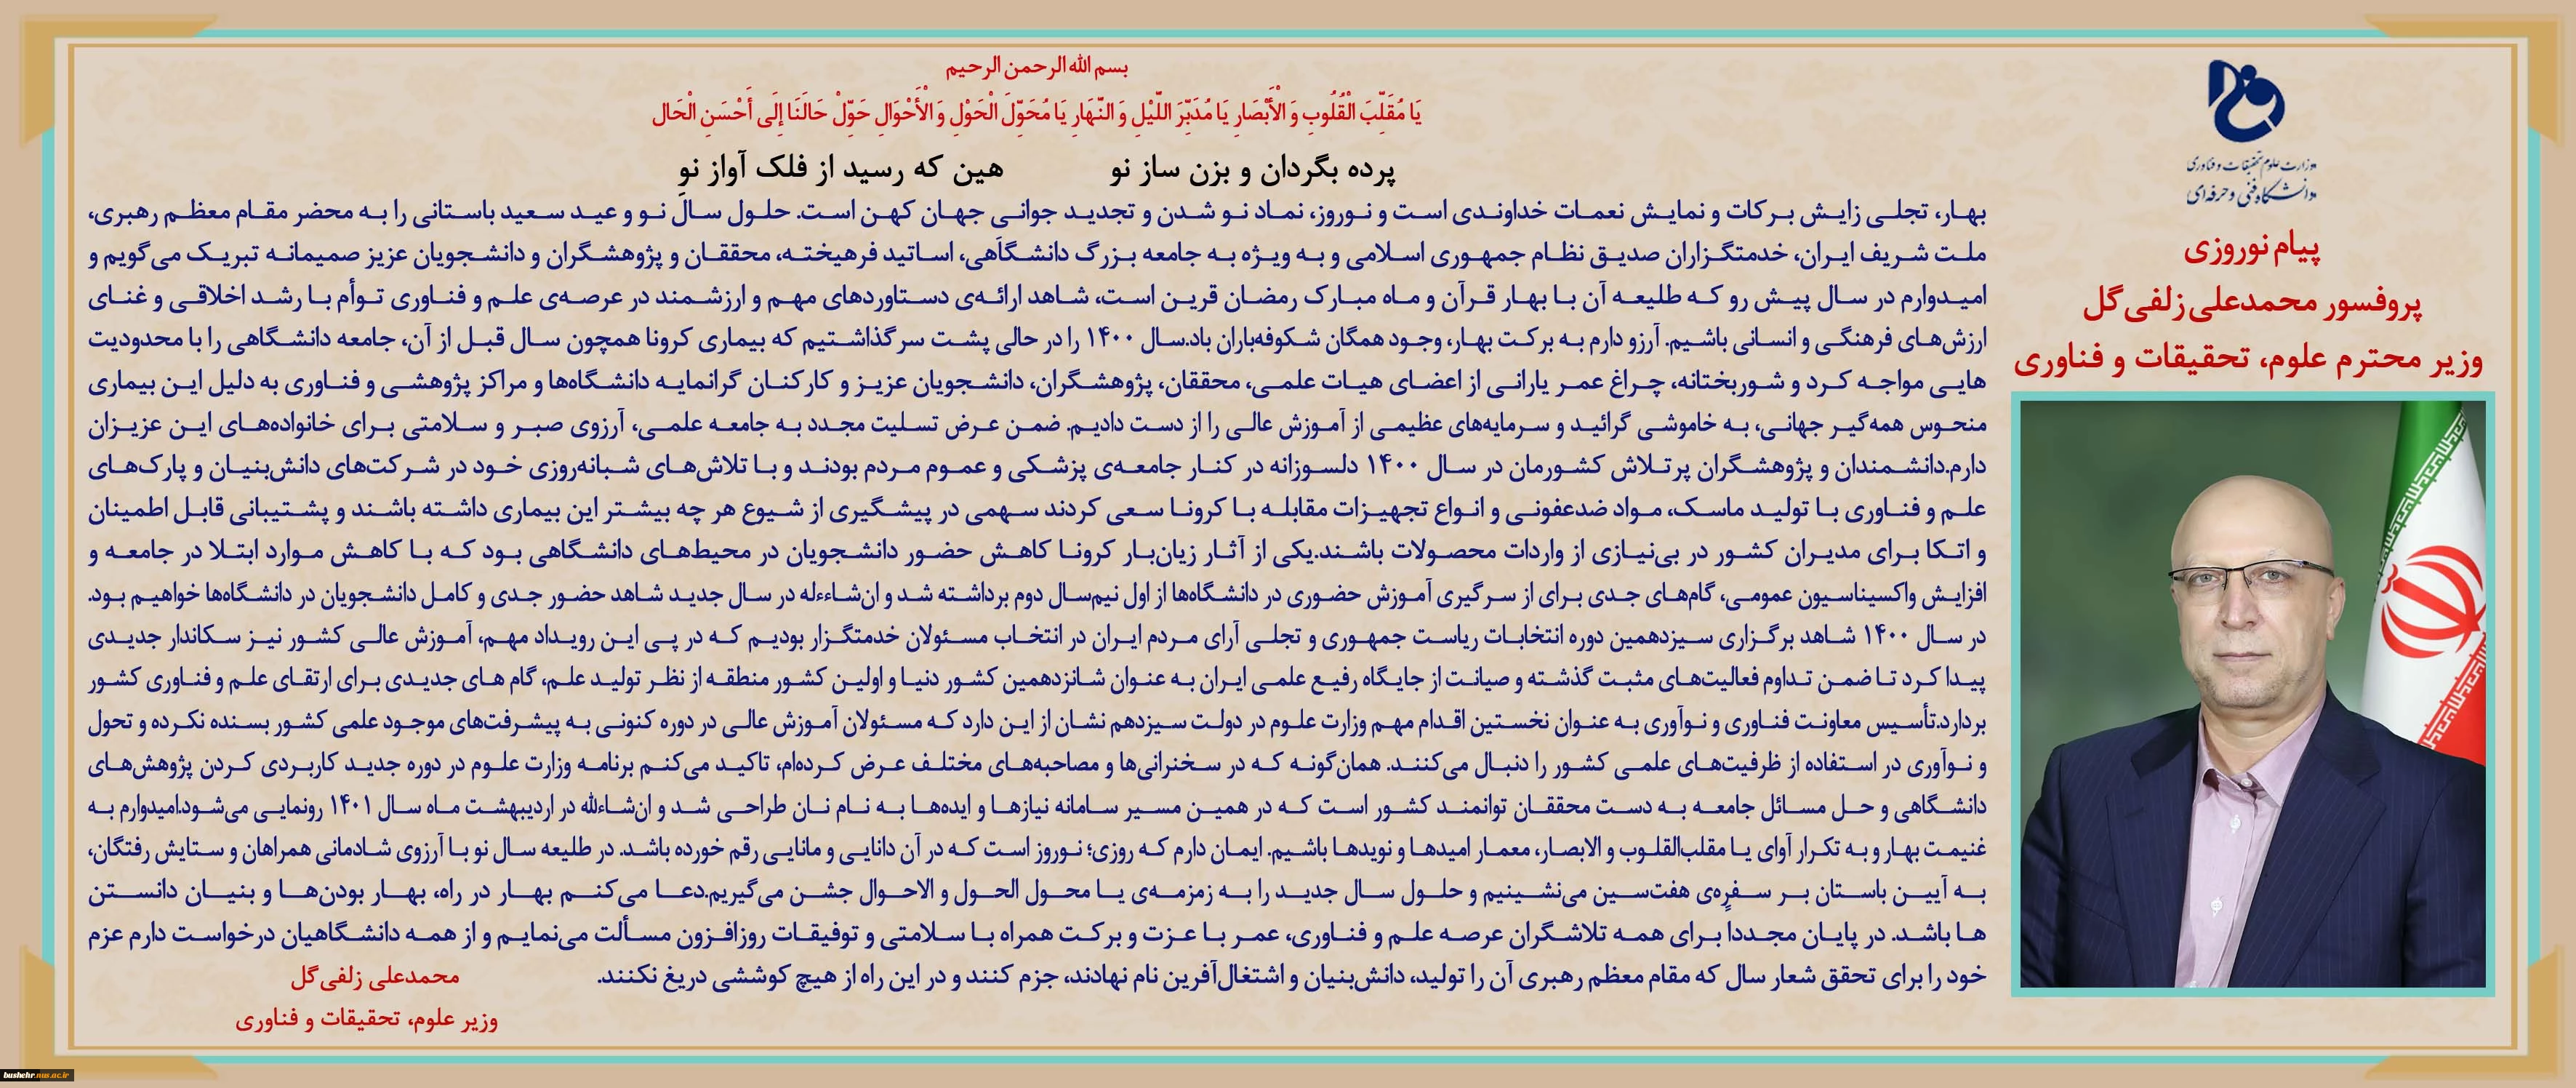 بسم الله الرحمن الرحیم
یَا مُقَلِّبَ الْقُلُوبِ وَ الْأَبْصَارِ یَا مُدَبِّرَ اللَّیْلِ وَ النَّهَارِ یَا مُحَوِّلَ الْحَوْلِ وَ الْأَحْوَالِ حَوِّلْ حَالَنَا إِلَی أَحْسَنِ الْحَال
پرده بگردان و بزن ساز نو هین که رسید از فلک آواز نو
وزارت علوم تحقیقات و فناوری
دانشگاه فنی و حرفه‌ای
پیام نوروزی
پروفسور محمدعلی زلفی گل
وزیر محترم علوم، تحقیقات و فناوری
بهار، تجلی زایش برکات و نمایش نعمات خداوندی است و نوروز، نماد نو شدن و تجدید جوانی جهان کهن است. حلول سال نو و عید سعید باستانی را به محضر مقام معظم رهبری،
ملت شریف ایران، خدمتگزاران صدیق نظام جمهوری اسلامی و به ویژه به جامعه بزرگ دانشگاهی، اساتید فرهیخته، محققان و پژوهشگران و دانشجویان عزیز صمیمانه تبریک می‌گویم و
امیدوارم در سال پیش رو که طلیعه آن با بهار قرآن و ماه مبارک رمضان قرین است، شاهد ارائه‌ی دستاوردهای مهم و ارزشمند در عرصه‌ی علم و فناوری توأم با رشد اخلاقی و غنای
ارزش‌های فرهنگی و انسانی باشیم. آرزو دارم به برکت بهار، وجود همگان شکوفه‌باران باد.سال ۱۴۰۰ را در حالی پشت سر گذاشتیم که بیماری کرونا همچون سال قبل از آن، جامعه دانشگاهی را با محدودیت
هایی مواجه کرد و شوربختانه، چراغ عمر یارانی از اعضای هیات علمی، محققان، پژوهشگران، دانشجویان عزیز و کارکنان گرانمایه دانشگاه‌ها و مراکز پژوهشی و فناوری به دلیل این بیماری
منحوس همه‌گیر جهانی، به خاموشی گرائید و سرمایه‌های عظیمی از آموزش عالی را از دست دادیم. ضمن عرض تسلیت مجدد به جامعه علمی، آرزوی صبر و سلامتی برای خانواده‌های این عزیزان
دارم.دانشمندان و پژوهشگران پرتلاش کشورمان در سال ۱۴۰۰ دلسوزانه در کنار جامعه‌ی پزشکی و عموم مردم بودند و با تلاش‌های شبانه‌روزی خود در شرکت‌های دانش‌بنیان و پارک‌های
علم و فناوری با تولید ماسک، مواد ضدعفونی و انواع تجهیزات مقابله با کرونا سعی کردند سهمی در پیشگیری از شیوع هر چه بیشتر این بیماری داشته باشند و پشتیبانی قابل اطمینان
و اتکا برای مدیران کشور در بی‌نیازی از واردات محصولات باشند.یکی از آثار زیان‌بار کرونا کاهش حضور دانشجویان در محیط‌های دانشگاهی بود که با کاهش موارد ابتلا در جامعه و
افزایش واکسیناسیون عمومی، گام‌های جدی برای از سرگیری آموزش حضوری در دانشگاه‌ها از اول نیم‌سال دوم برداشته شد و ان‌شاءءله در سال جدید شاهد حضور جدی و کامل دانشجویان در دانشگاه‌ها خواهیم بود.
در سال ۱۴۰۰ شاهد برگزاری سیزدهمین دوره انتخابات ریاست جمهوری و تجلی آرای مردم ایران در انتخاب مسئولان خدمتگزار بودیم که در پی این رویداد مهم، آموزش عالی کشور نیز سکاندار جدیدی
پیدا کرد تا ضمن تداوم فعالیت‌های مثبت گذشته و صیانت از جایگاه رفیع علمی ایران به عنوان شانزدهمین کشور دنیا و اولین کشور منطقه از نظر تولید علم، گام های جدیدی برای ارتقای علم و فناوری کشور
بردارد.تأسیس معاونت فناوری و نوآوری به عنوان نخستین اقدام مهم وزارت علوم در دولت سیزدهم نشان از این دارد که مسئولان آموزش عالی در دوره کنونی به پیشرفت‌های موجود علمی کشور بسنده نکرده و تحول
و نوآوری در استفاده از ظرفیت‌های علمی کشور را دنبال می‌کنند. همان‌گونه که در سخنرانی‌ها و مصاحبه‌های مختلف عرض کرده‌ام، تاکید می‌کنم برنامه وزارت علوم در دوره جدید کاربردی کردن پژوهش‌های
دانشگاهی و حل مسائل جامعه به دست محققان توانمند کشور است که در همین مسیر سامانه نیازها و ایده‌ها به نام نان طراحی شد و ان‌شاءالله در اردیبهشت ماه سال ۱۴۰۱ رونمایی می‌شود.امیدوارم به
غنیمت بهار و به تکرار آوای یا مقلب‌القلوب و الابصار، معمار امیدها و نویدها باشیم. ایمان دارم که روزی؛ نوروز است که در آن دانایی و مانایی رقم خورده باشد. در طلیعه سال نو با آرزوی شادمانی همراهان و ستایش رفتگان،
به آیین باستان بر سفره‌ی هفت‌سین می‌نشینیم و حلول سال جدید را به زمزمه‌ی یا محول الحول و الاحوال جشن می‌گیریم.دعا می‌کنم بهار در راه، بهار بودن‌ها و بنیان دانستن
ها باشد. در پایان مجددا برای همه تلاشگران عرصه علم و فناوری، عمر با عزت و برکت همراه با سلامتی و توفیقات روزافزون مسألت می‌نمایم و از همه دانشگاهیان درخواست دارم عزم
خود را برای تحقق شعار سال که مقام معظم رهبری آن را تولید، دانش‌بنیان و اشتغال‌آفرین نام نهادند، جزم کنند و در این راه از هیچ کوششی دریغ نکنند.
محمدعلی زلفی گل
وزیر علوم، تحقیقات و فناوری
bushehr.nus.ac.ir